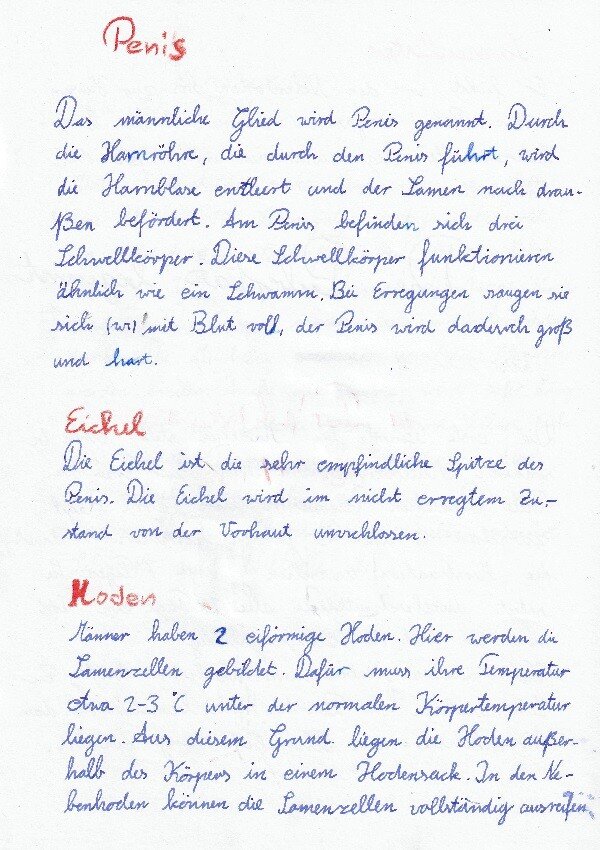 Penis
Das männliche Glied wird Penis genannt. Durch
die Harnröhre, die durch den Penis führt, wird
die Harnblase entleert und der Samen nach drau-
ßen befördert. Am Penis befinden sich drei
Schwellkörper. Diese Schwellkörper funktionieren
ähnlich wie ein Schwamm. Bei Erregungen saugen sie
sich mit Blut voll, der Penis wird dadurch groß
und hart.
Eichel
Die Eichel ist die sehr empfindliche Spitze des
Penis. Die Eichel wird im nicht erregtem Zu-
stand von der Vorhaut umschlossen.
Hoden
Männer haben 2 eiförmige Hoden. Hier werden die
Samenzellen gebildet. Dafür muss ihre Temperatur
etwa 2-3 °C unter der normalen Körpertemperatur
liegen. Aus diesem Grund liegen die Hoden außer-
halb des Körpers in einem Hodensack. In den Ne-
benhoden können die Samenzellen vollständig ausreifen.